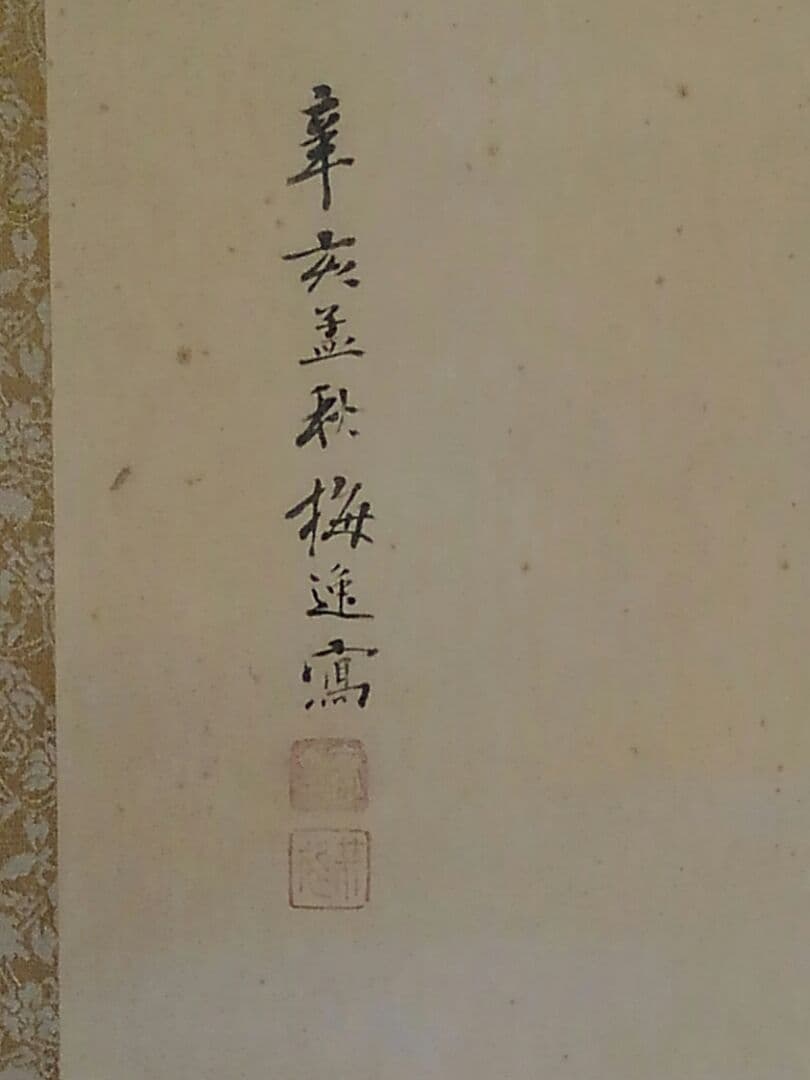 辛亥孟秋梅逸寫